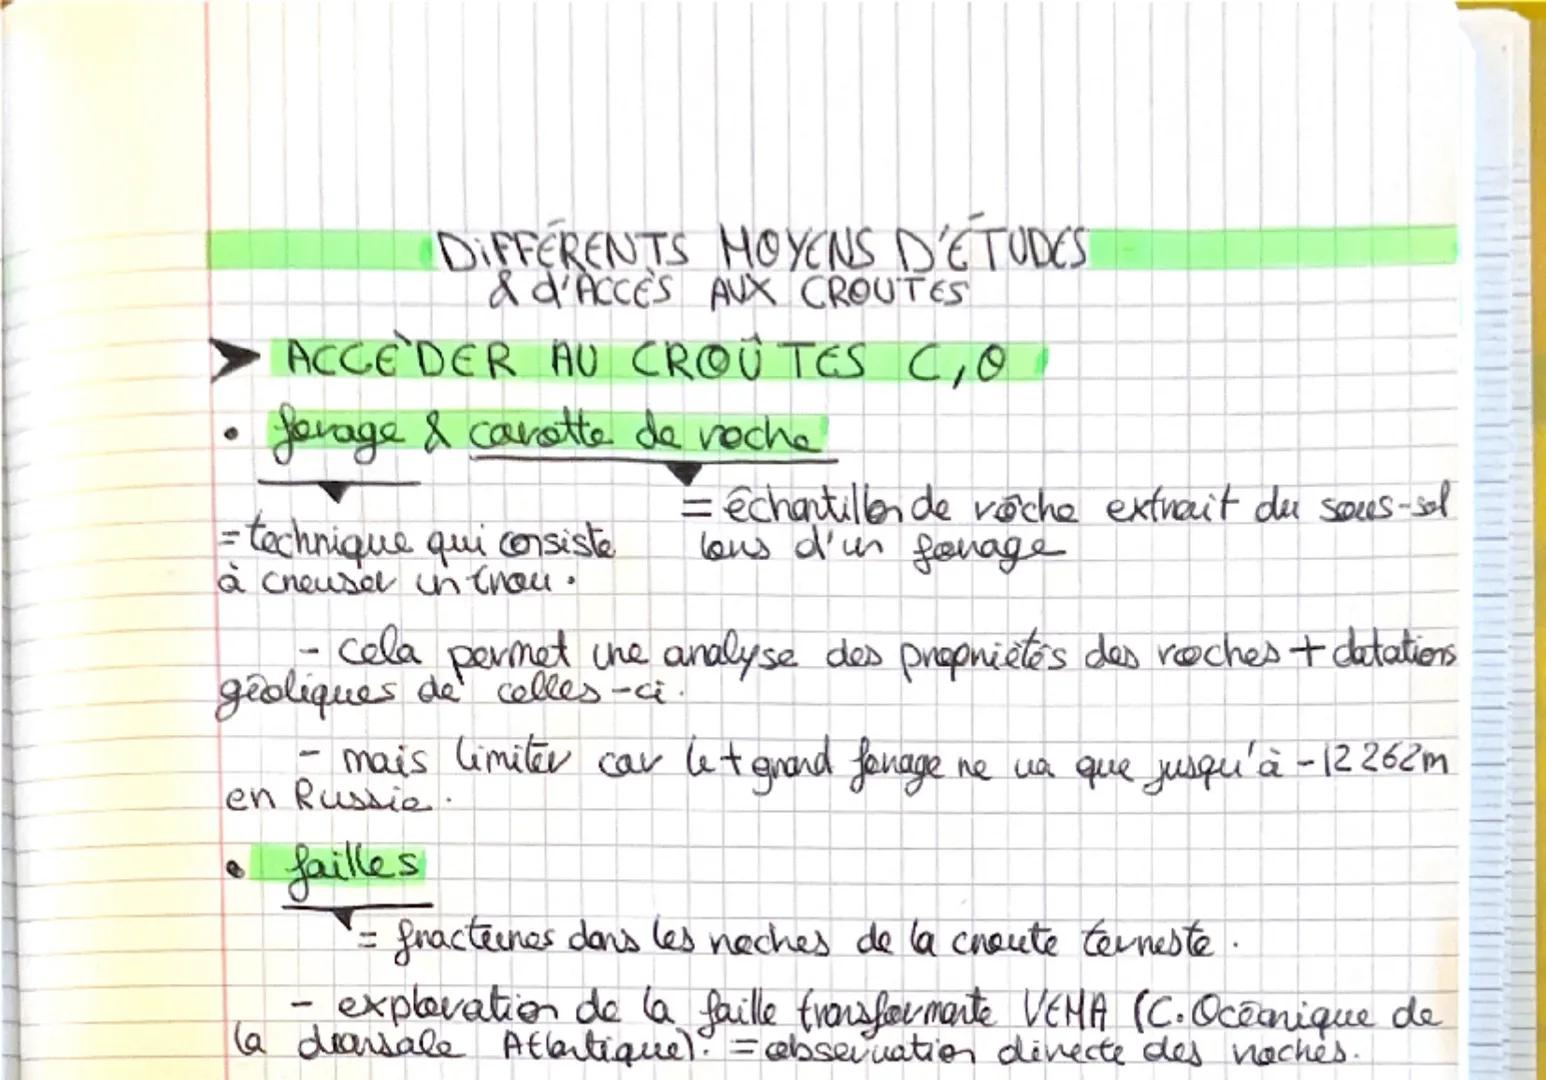 DIFFÉRENTS MOYENS D'ÉTUDES
& d'ACCÈS AUX CROUTES
➤ ACCÉDER AU CROÛTES C, O
• forage & carotte de roche
= échantillon de roche extrait du sous-sol
= technique qui consiste lors d'un forage
à creuser un trou.
- cela permet une analyse des propriétés des roches + datations
géoliques de celles-ci.
- mais limiter car le + grand forage ne va que jusqu'à -12 262m
en Russie.
• failles
= fractures dans les roches de la croute terreste.
- exploration de la faille transformante VEMA (C. Océanique de
la dorsale Atlantique). = observation directe des roches.